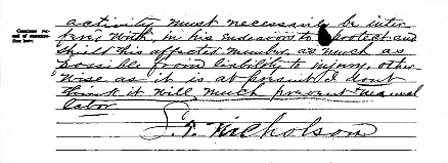 activity must necessarily be inter-
with, in his endeavor to protect and
shield this affected member, as much as
possible from liability to injury, other-
wise as it is at present I dont
think it will much prevent manual
labor
Nicholson